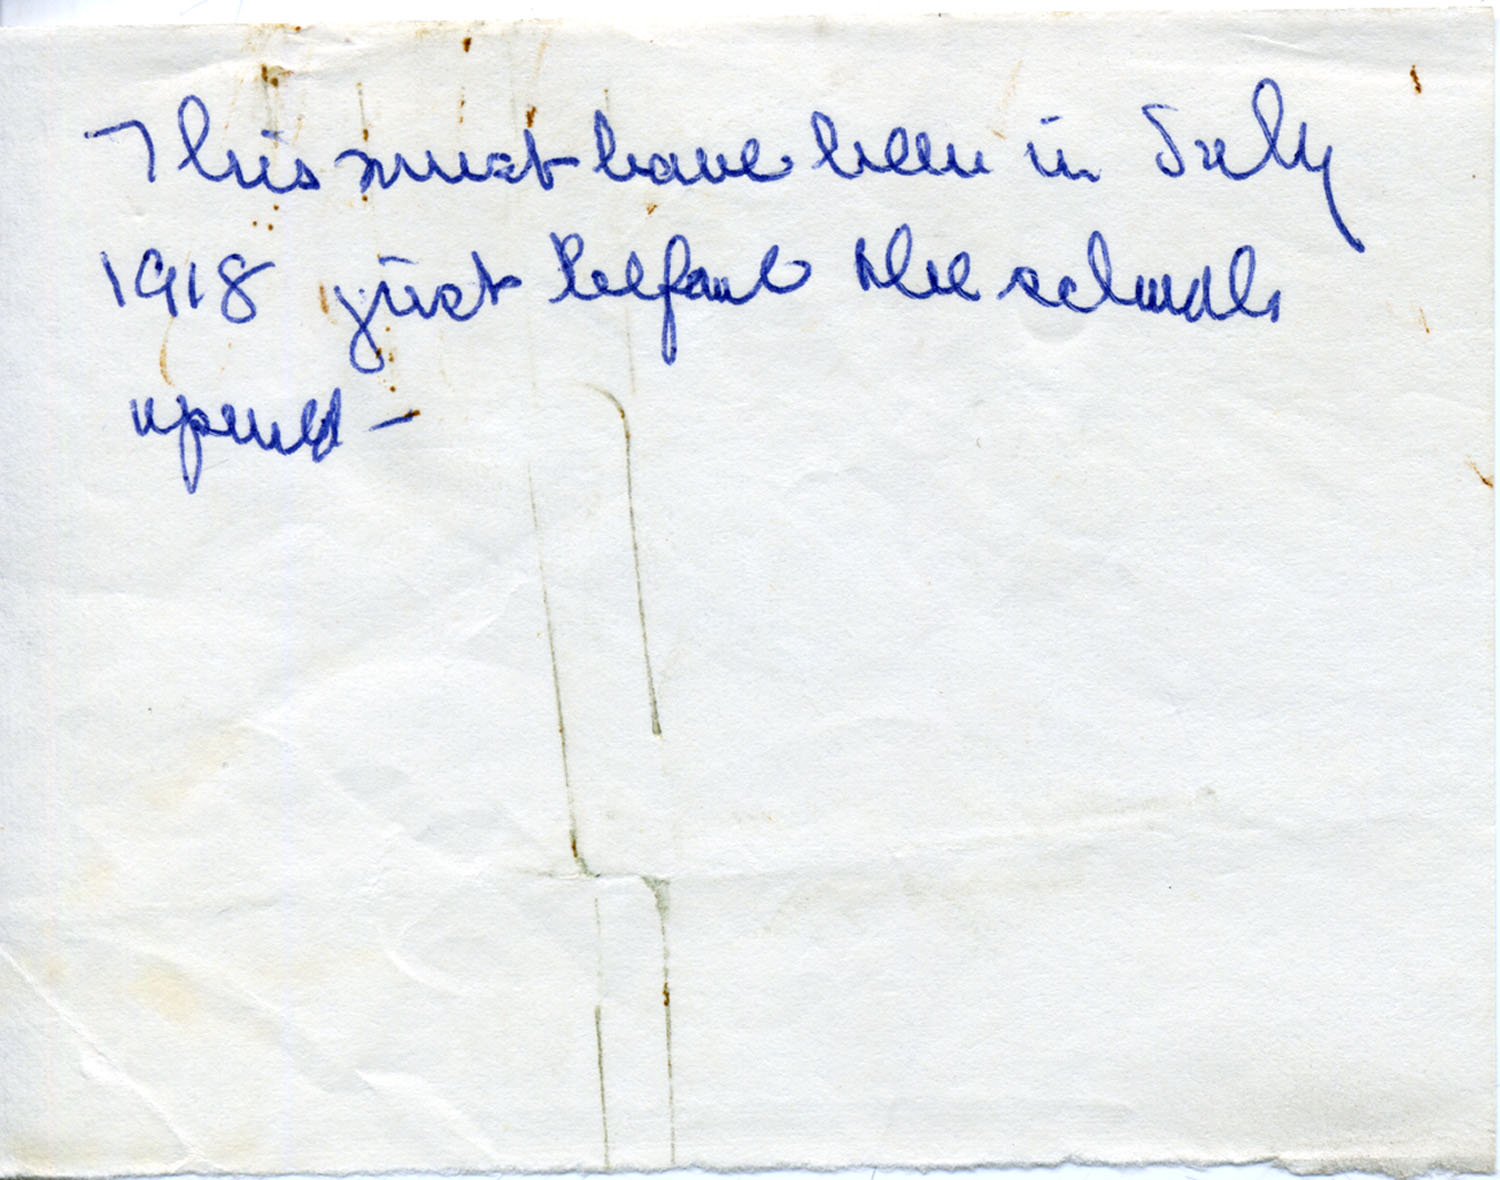 This must have been in July
1918 just before the schools
opened –